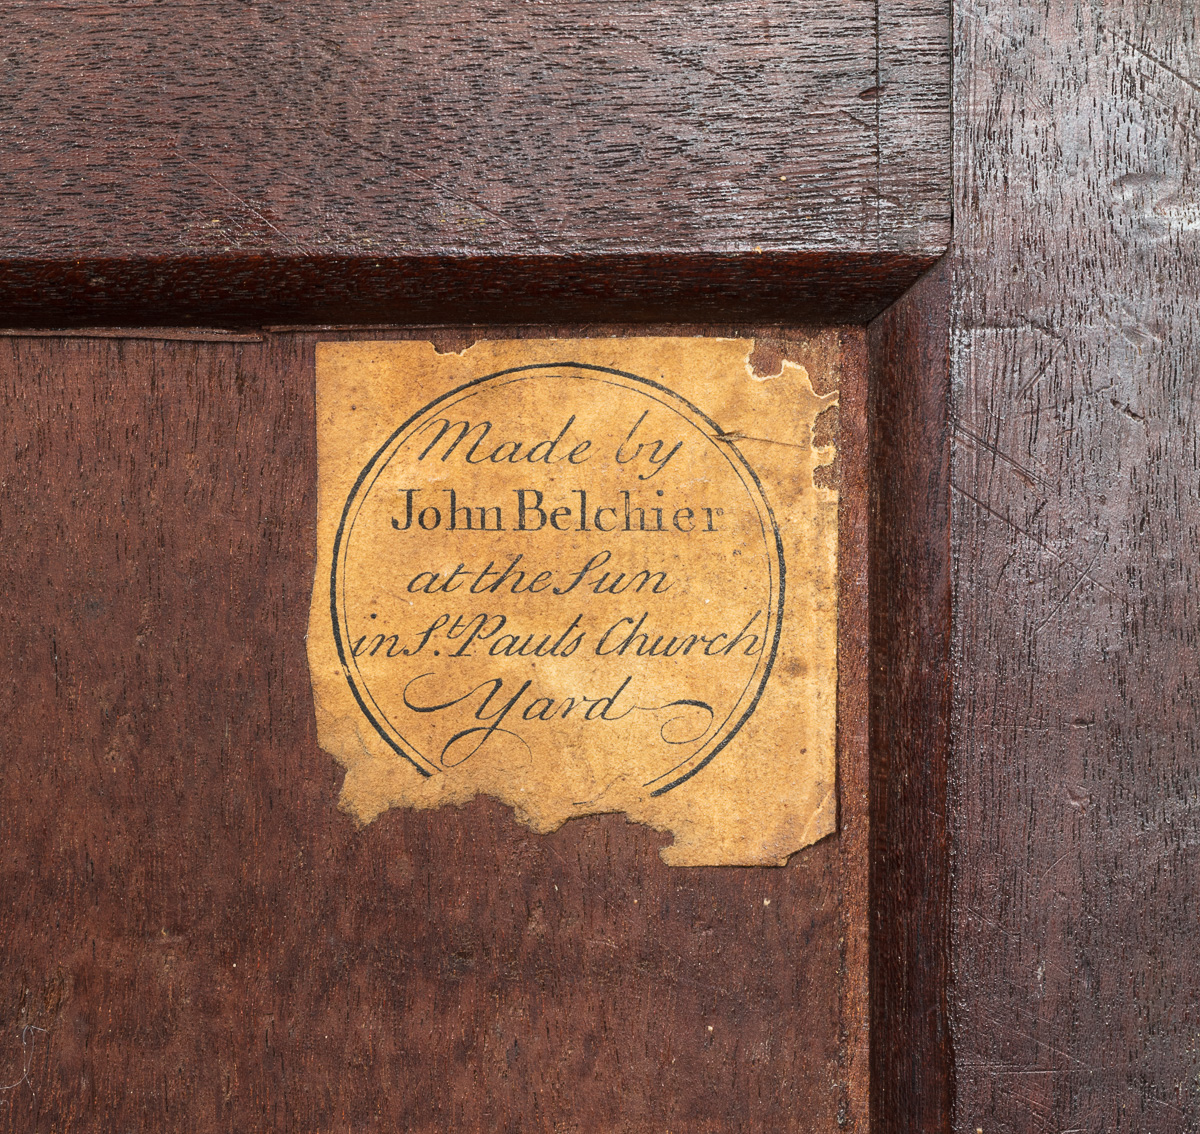 Made by
John Belchier
at the Sun
in St. Paul's Church
Yard